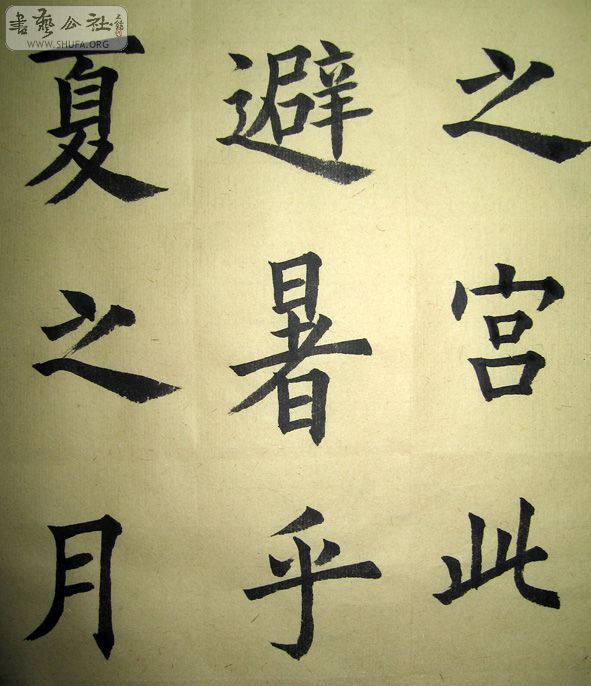 書藝公社
WWW.SHUFA.ORG
夏之月
避暑乎
之宫此